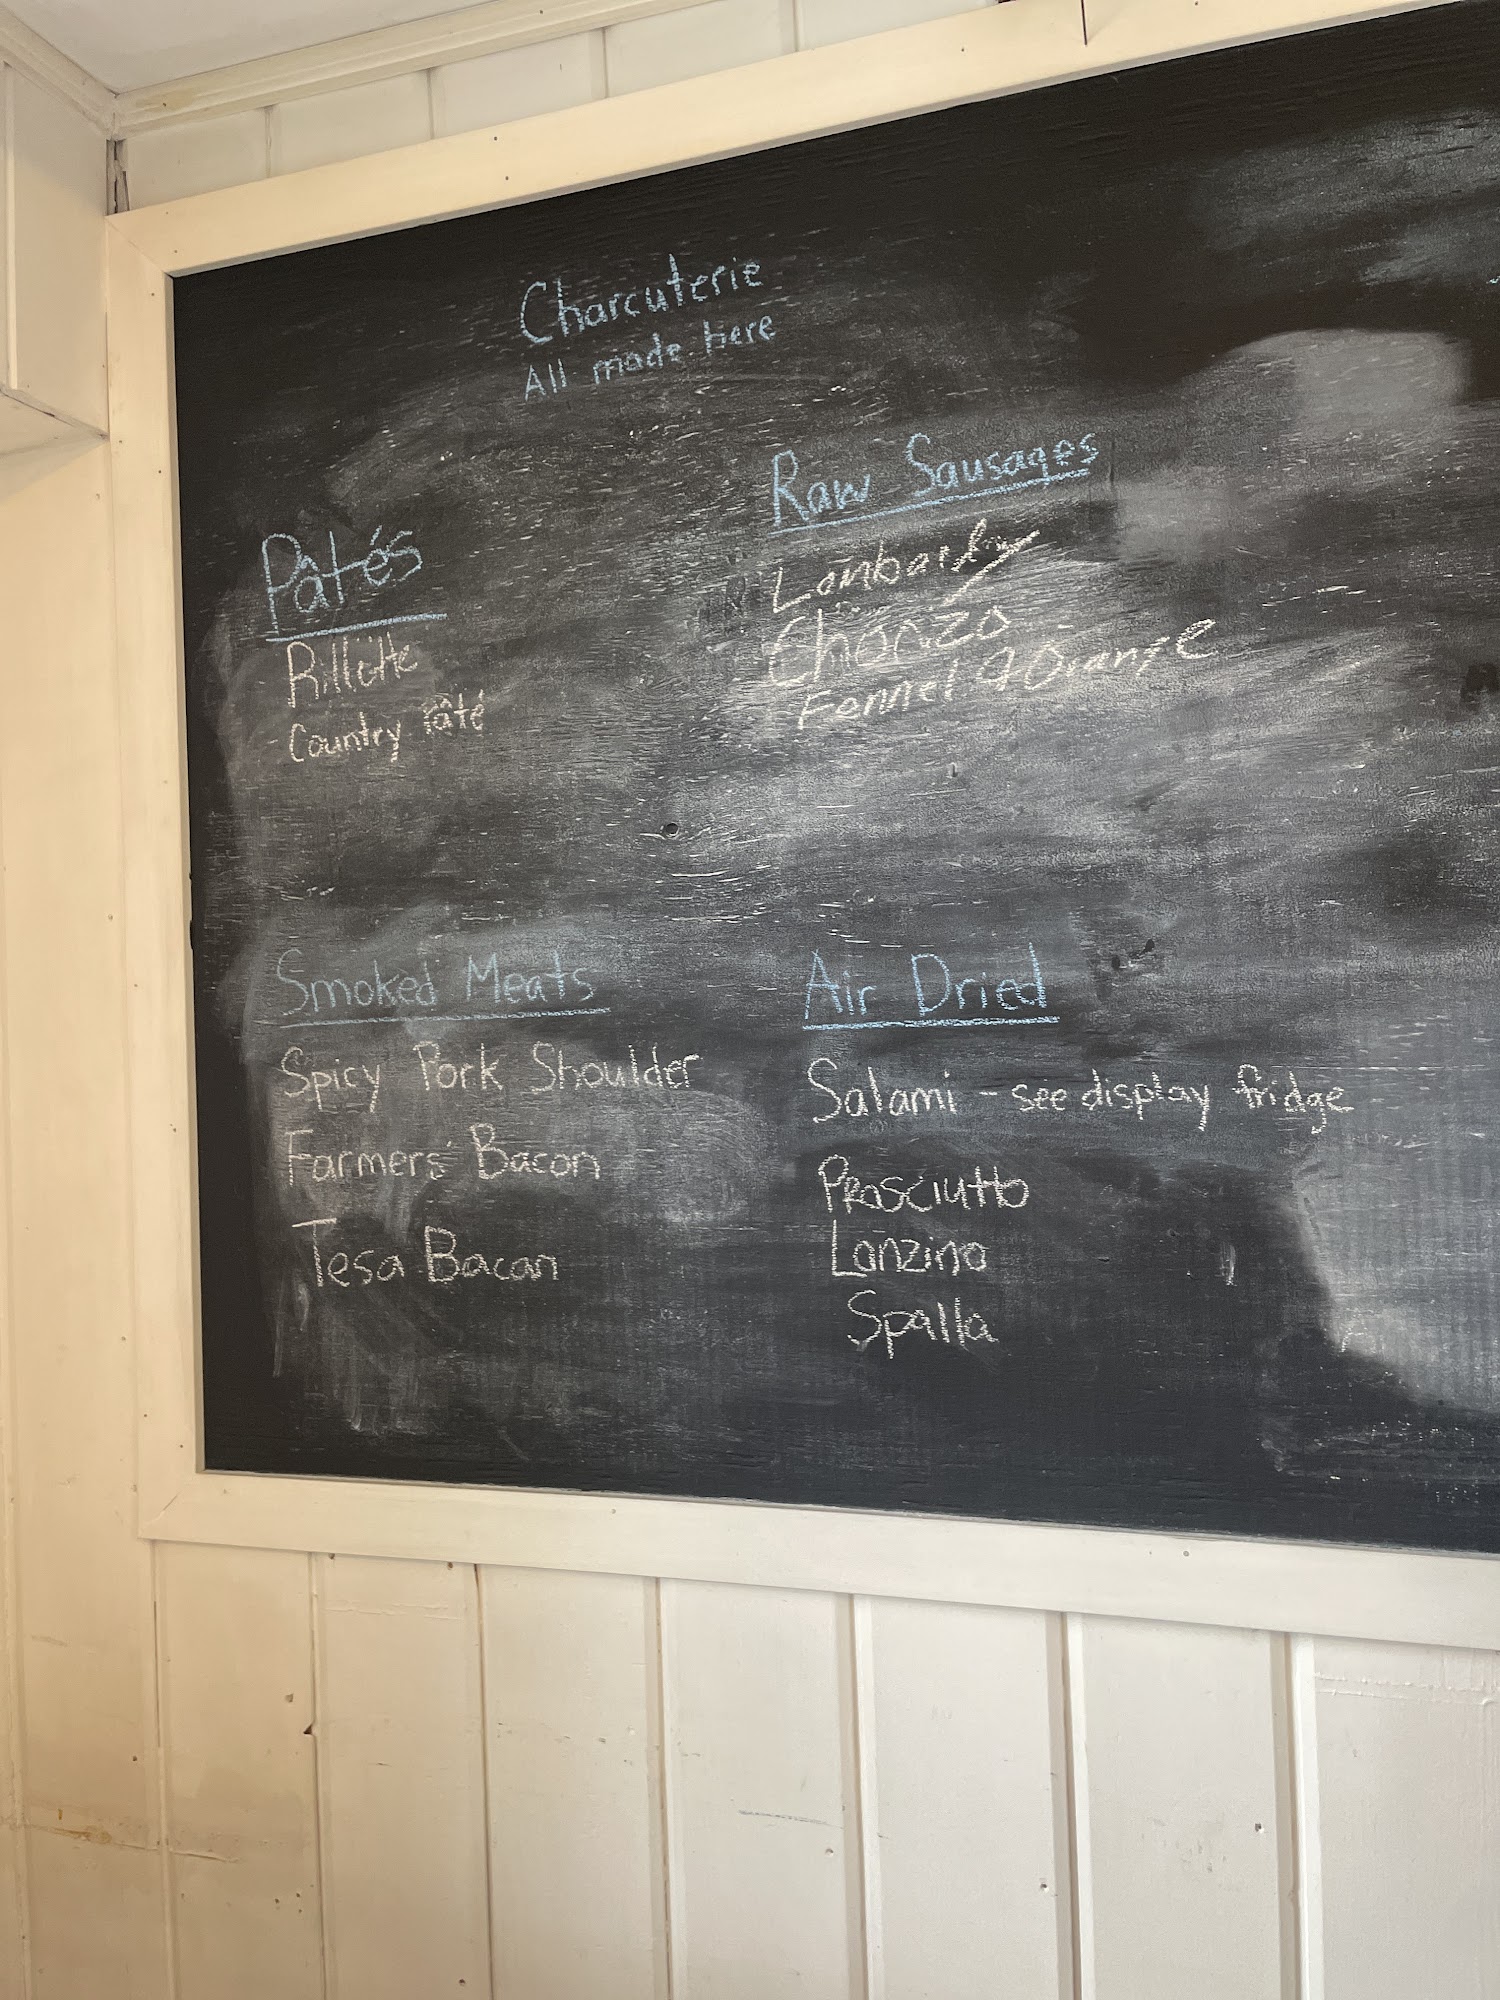 Charcuterie
All made here
Pâtés
Rillette
Country Pâté
Raw Sausages
Lombardy
Chorizo
Fennel & Orange
Smoked Meats
Spicy Pork Shoulder
Farmers' Bacon
Tesa Bacon
Air Dried
Salami - see display fridge
Prosciutto
Lonzino
Spalla